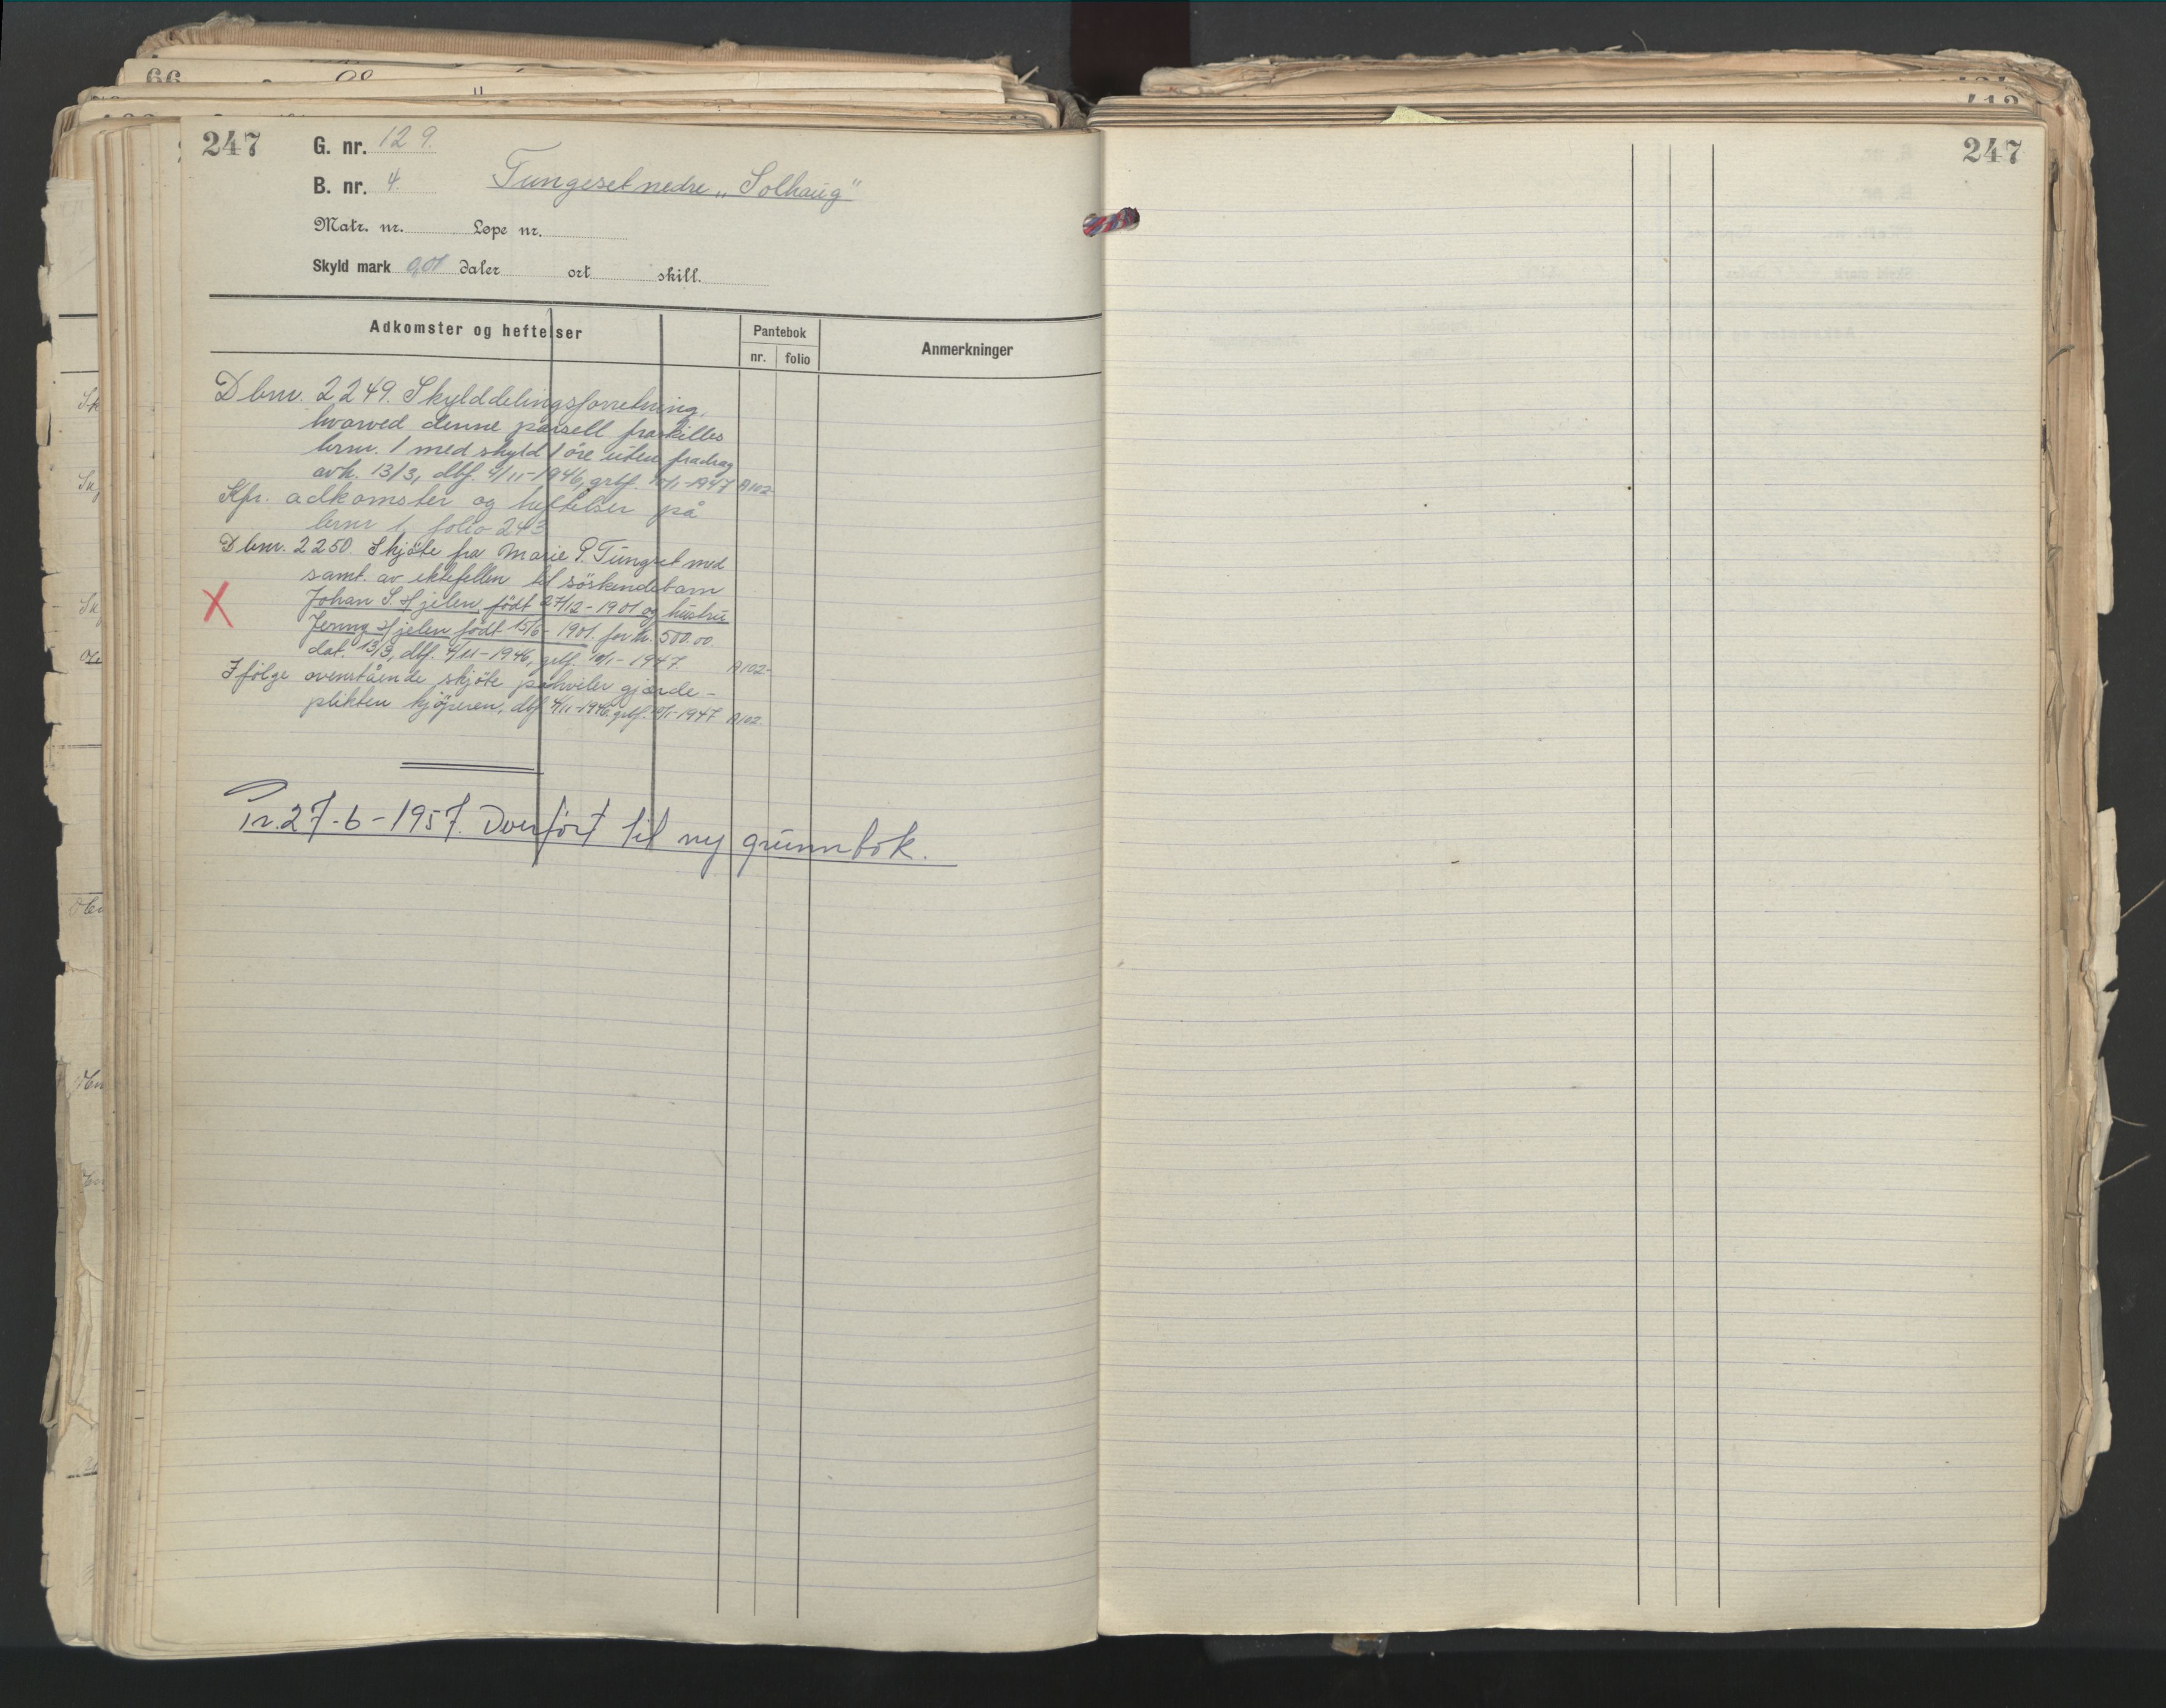 247
G. nr. 129.
B. nr. 4. Tungeset nedre „Solhaug"
Matr. nr. Løpe nr.
Skyld mark 0,01 daler ort skill.
Adkomster og heftelser
Pantebok
nr. folio
Anmerkninger
Dbnr. 2249. Skylddelingsforretning,
hvorved denne parsell fraskilles
brnr. 1 med skyld 1 øre uten fradrag
avh. 13/3, dbf. 4/11-1946, grbf. 10/1-1947 A102-
Kfr. adkomster og heftelser på
brnr 1, folio 243
Dbnr. 2250. Skjöte fra Marie P. Tungset med
samt. av ektefellen til söskendebarn
X Johan S. Hjelen født 27/12-1901 og hustru
Jenny Hjelen født 15/6-1901. for kr. 500.00
dat. 13/3, dbf. 4/11-1946, grbf. 10/1-1947 A102-
Ifölge ovenstående skjöte påhviler gjærde-
plikten kjöperen, dbf 4/11-1946, grbf. 10/1-1947 A102.
Pr. 27-6-1957. Overfört til ny grunnbok.
247